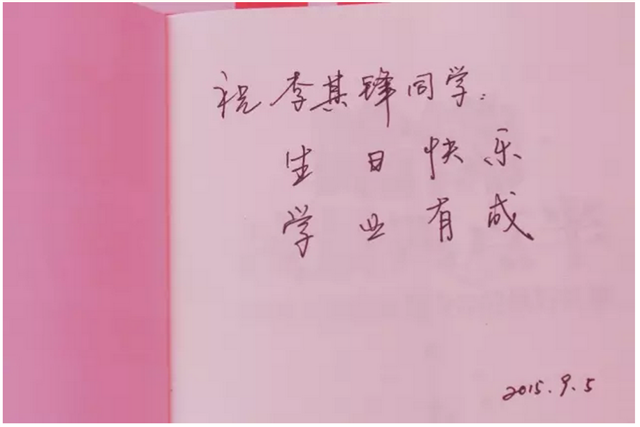 祝李其锋同学:
生日快乐
学业有成
2015.9.5